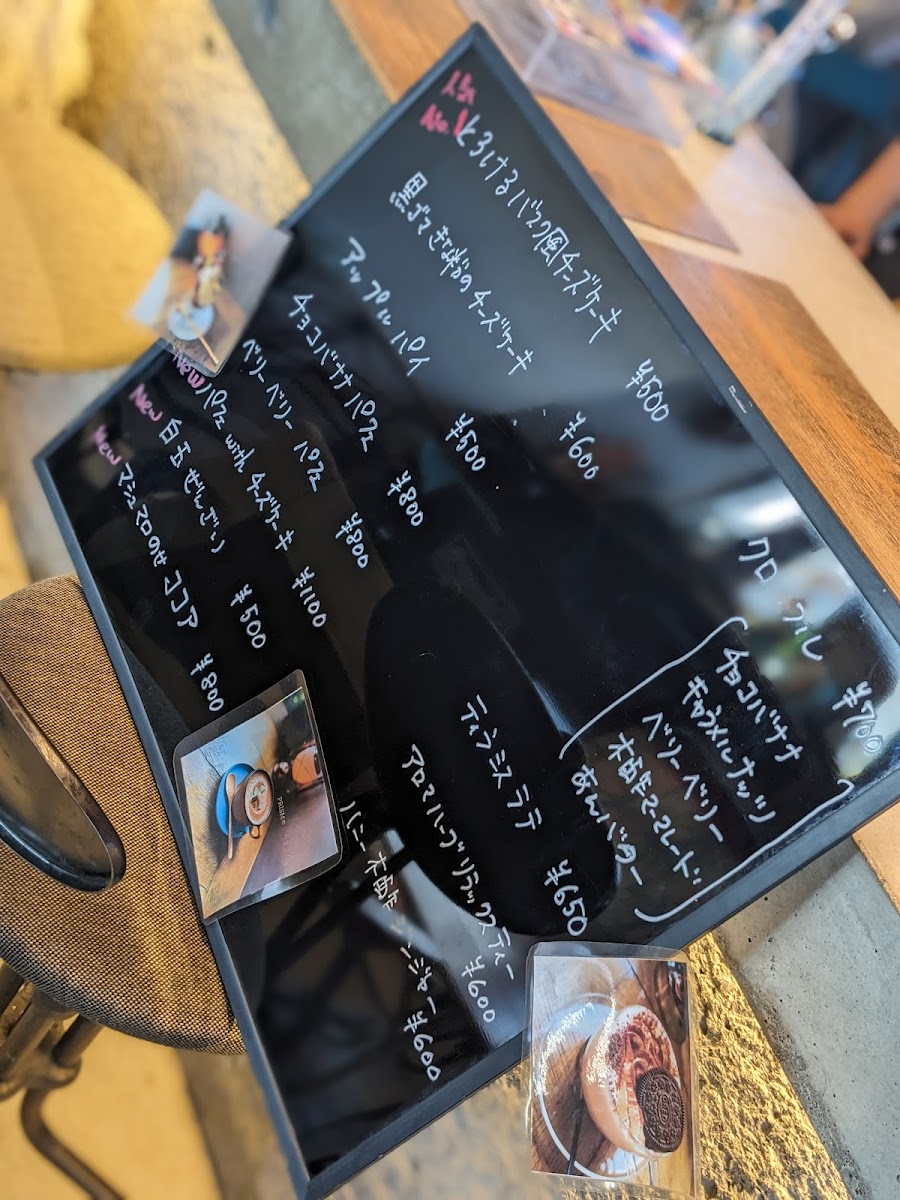 人気 No.1 とろけるバスク風チーズケーキ ¥500
黒ゴマきな粉のチーズケーキ ¥600
アップルパイ ¥500
チョコバナナパフェ ¥800
ベリーベリーパフェ ¥800
New パフェ with チーズケーキ ¥1100
New 白玉ぜんざい ¥500
New マシュマロのせココア ¥800
クロッフル ¥700
チョコバナナ
キャラメルナッツ
ベリーベリー
柚子マーマレード
あんバター
ティラミスラテ ¥650
アロマハーブリラックスティー ¥600
ハニー柚子ジンジャー ¥600
PRISM